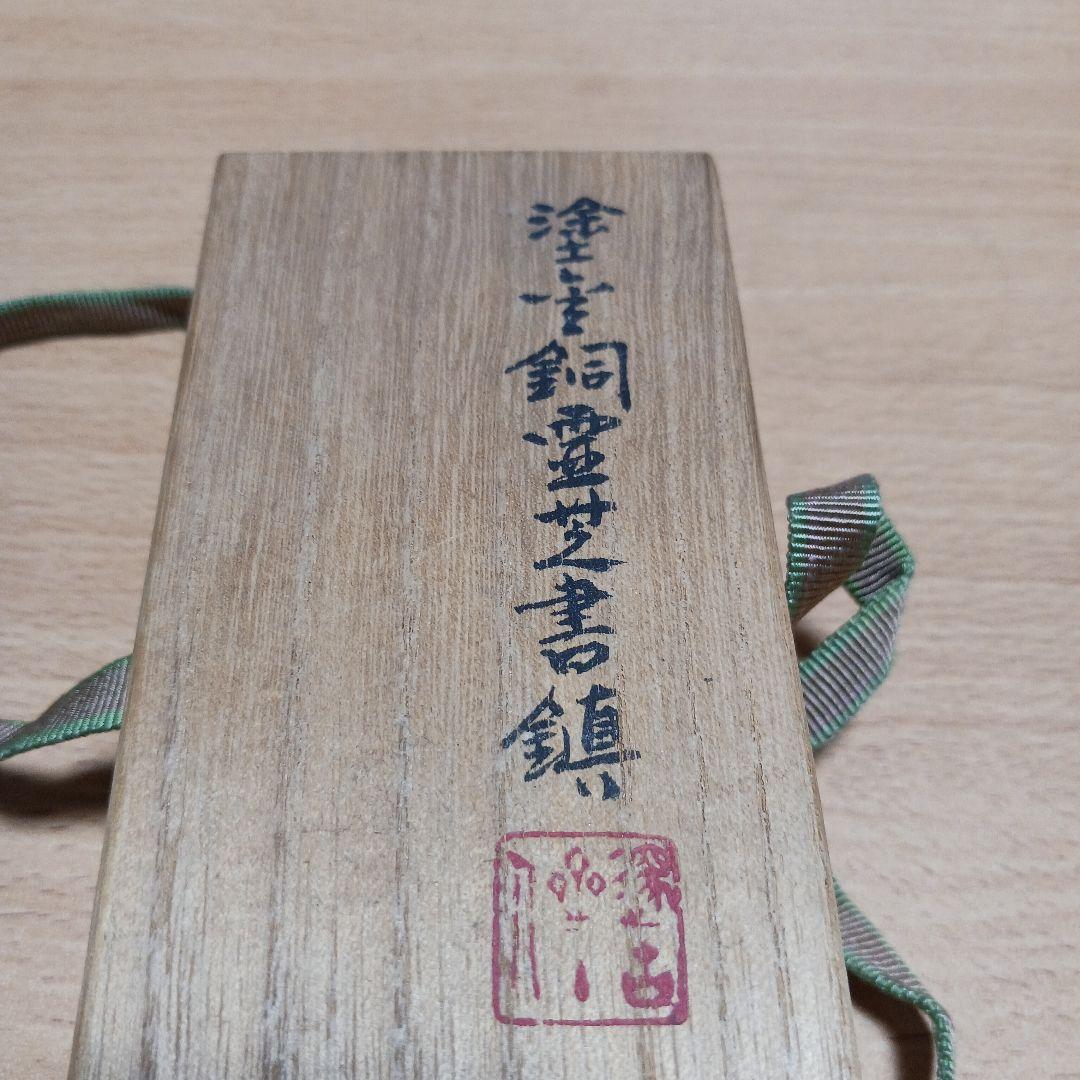 塗金銅霊芝書鎮